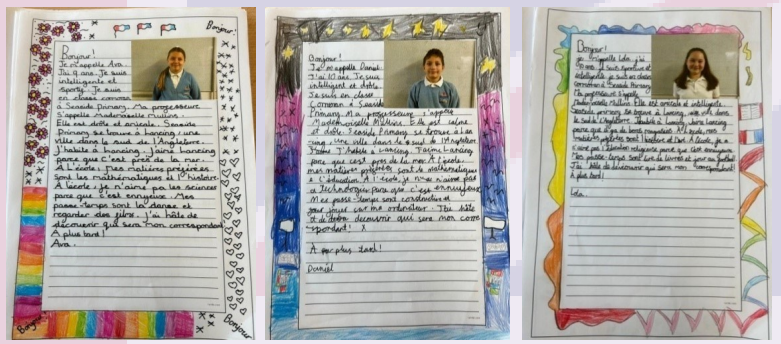 Bonjour!
Bonjour!
Je m'appelle Ava.
J'ai 9 ans. Je suis
intelligente et
sporty. Je suis
en classe
à Seaside Primary. Ma professeure
s'appelle mademoiselle Mullins.
Elle est drôle et amicale. Seaside
Primary se trouve à Lancing, une
ville dans le sud de l'Angleterre.
J'habite à Lancing. J'aime Lancing
parce que c'est près de la mer.
A l'école, mes matières préférées
sont les mathématiques et l'histoire.
A l'école, je n'aime pas les sciences
parce que c'est ennyeux. Mes
passe-temps sont la danse et
regarder des films. J'ai hâte de
découvrir qui sera mon correspondant
A plus tard!
Ava.
Bonjour
Bonjour
Bonjour!
Je m'appelle Daniel.
J'ai 10 ans. Je suis
intelligent et drôle.
Je suis en classe
Common à Seaside
Primary. Ma professeure s'appelle
Mademoiselle Mullins. Elle est calme
et drôle. Seaside Primary se trouve à Lan
cing, une ville dans le sud de l'Angleterre
J'habite à Lancing. J'aime Lancing
parce que c'est près de la mer. A l'école,
mes matières préférées sont les mathématiques
et l'éducation. A l'école, je n'aime pas
la technologie parce que c'est ennuyeux
Mes passe-temps sont construction et
jouer sur mon ordinateur. J'ai hâte
de découvrir qui sera mon corre
spondant! X
A plus tard!
Daniel
Bonjour!
je m'appelle Lola, j'ai
10 ans. Je suis sportive et
intelligente. je suis en classe
à Seaside Primary.
Ma professeure s'appelle
Mademoiselle Mullins. Elle est amicale et intelligente.
Seaside primary se trouve à Lancing, une ville dans
le sud de l'Angleterre. J'habite à Lancing. J'aime Lancing
parce que A l'école, mes
matières préférées sont l'histoire et l'art. A l'école, je
n'aime pas l'éducation religieuse parce que c'est ennuyeux
Mes passe-temps sont lire des livres et jouer au football.
J'ai hâte de découvrir qui sera mon correspondant!
A plus tard!
Lola.